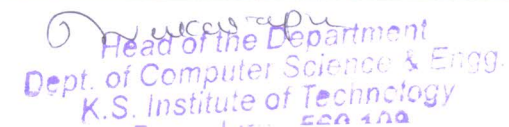 Head of the Department
Dept. of Computer Science & Engg.
K.S. Institute of Technology
560 109